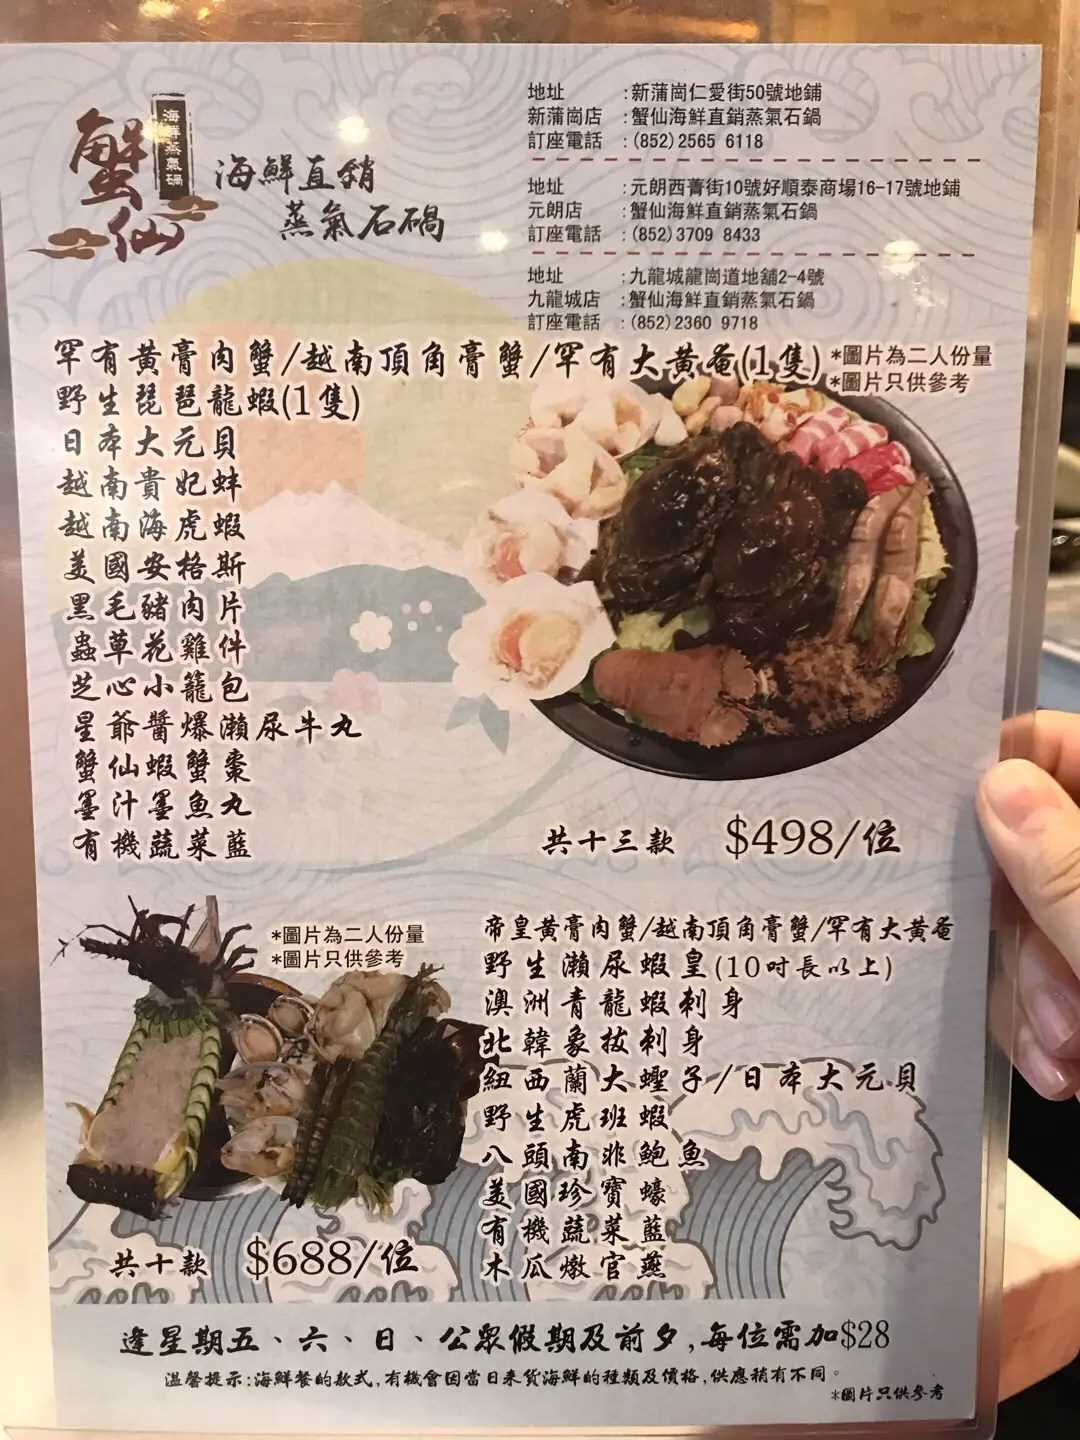 蟹仙
海鮮蒸氣鍋
海鮮直銷
蒸氣石鍋
地址 :新蒲崗仁愛街50號地鋪
新蒲崗店 :蟹仙海鮮直銷蒸氣石鍋
訂座電話 :(852)2565 6118
地址 :元朗西菁街10號好順泰商場16-17號地鋪
元朗店 :蟹仙海鮮直銷蒸氣石鍋
訂座電話 :(852)3709 8433
地址 :九龍城龍崗道地舖2-4號
九龍城店 :蟹仙海鮮直銷蒸氣石鍋
訂座電話 :(852)2360 9718
罕有黃膏肉蟹/越南頂角膏蟹/罕有大黃奄(1隻)
*圖片為二人份量
*圖片只供參考
野生琵琶龍蝦(1隻)
日本大元貝
越南貴妃蚌
越南海虎蝦
美國安格斯
黑毛豬肉片
蟲草花雞件
芝心小籠包
星爺醬爆瀨尿牛丸
蟹仙蝦蟹棗
墨汁墨魚丸
有機蔬菜藍
共十三款 $498/位
*圖片為二人份量
*圖片只供參考
帝皇黃膏肉蟹/越南頂角膏蟹/罕有大黃奄
野生瀨尿蝦皇(10吋長以上)
澳洲青龍蝦刺身
北韓象拔刺身
紐西蘭大蟶子/日本大元貝
野生虎班蝦
八頭南非鮑魚
美國珍寶蠔
有機蔬菜藍
木瓜燉官燕
共十款 $688/位
逢星期五、六、日、公眾假期及前夕,每位需加$28
溫馨提示:海鮮餐的款式,有機會因當日來貨海鮮的種類及價格,供應稍有不同。
*圖片只供參考